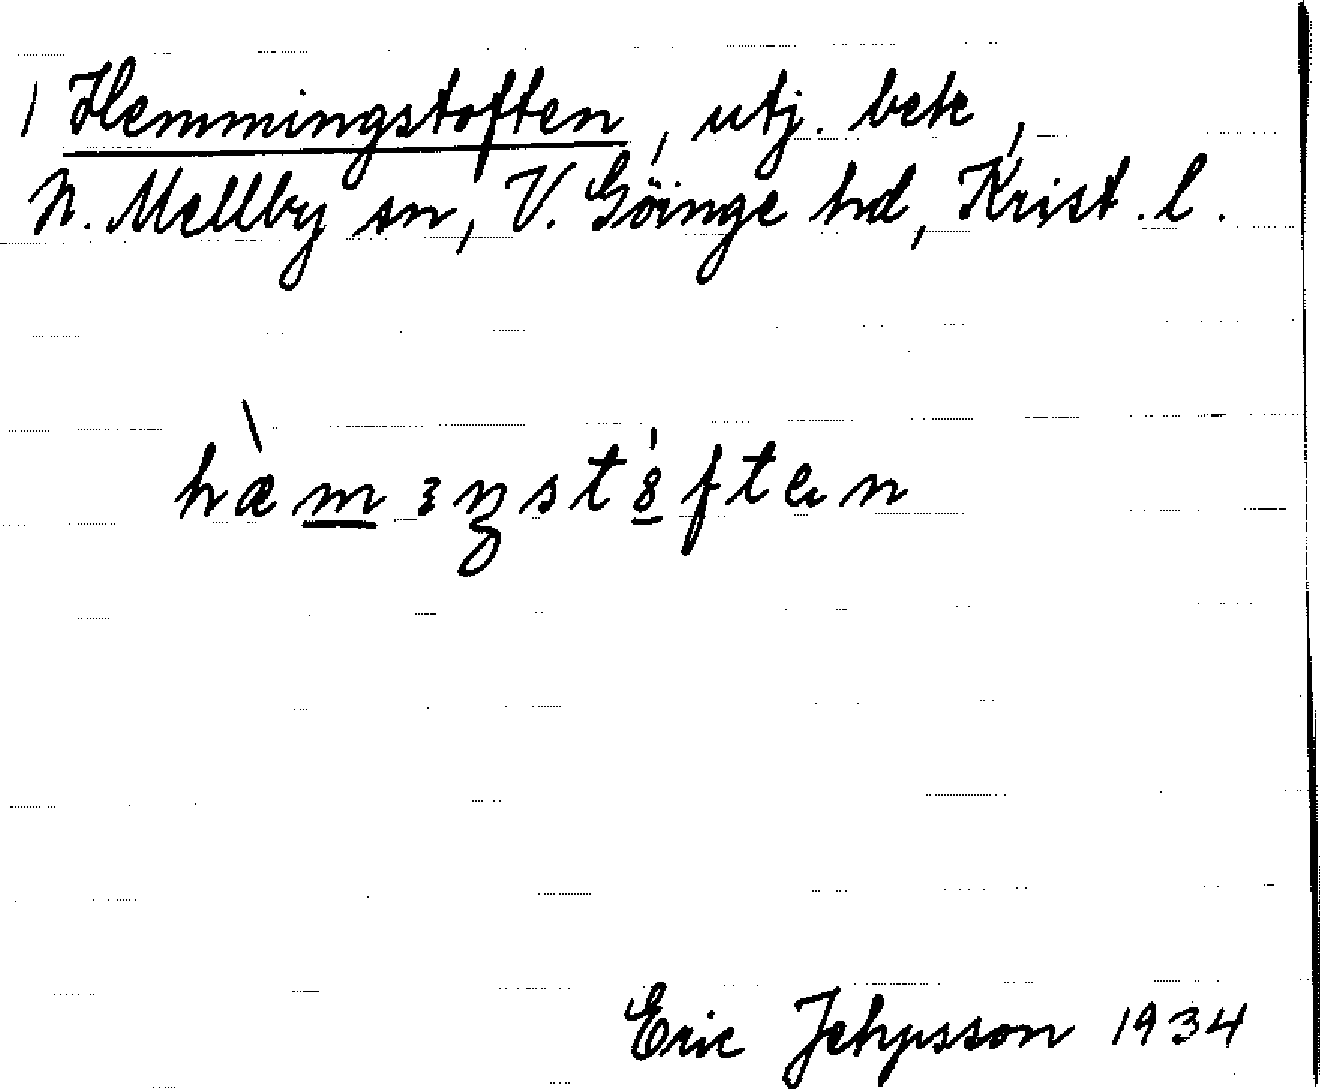 1 Hemmingstoften, utj. bek,
N. Mellby sn, V. Göinge hd, Krist. l.
hæ̀mɜŋst8́ften
Eric Jehpsson 1934